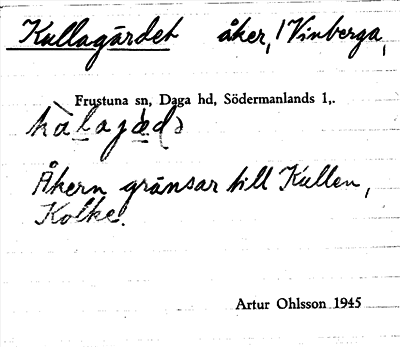 Kullagärdet åker, Vinberga,
Frustuna sn, Daga hd, Södermanlands l,.
Åkern gränsar till Kullen,
Kolke.
Artur Ohlsson 1945